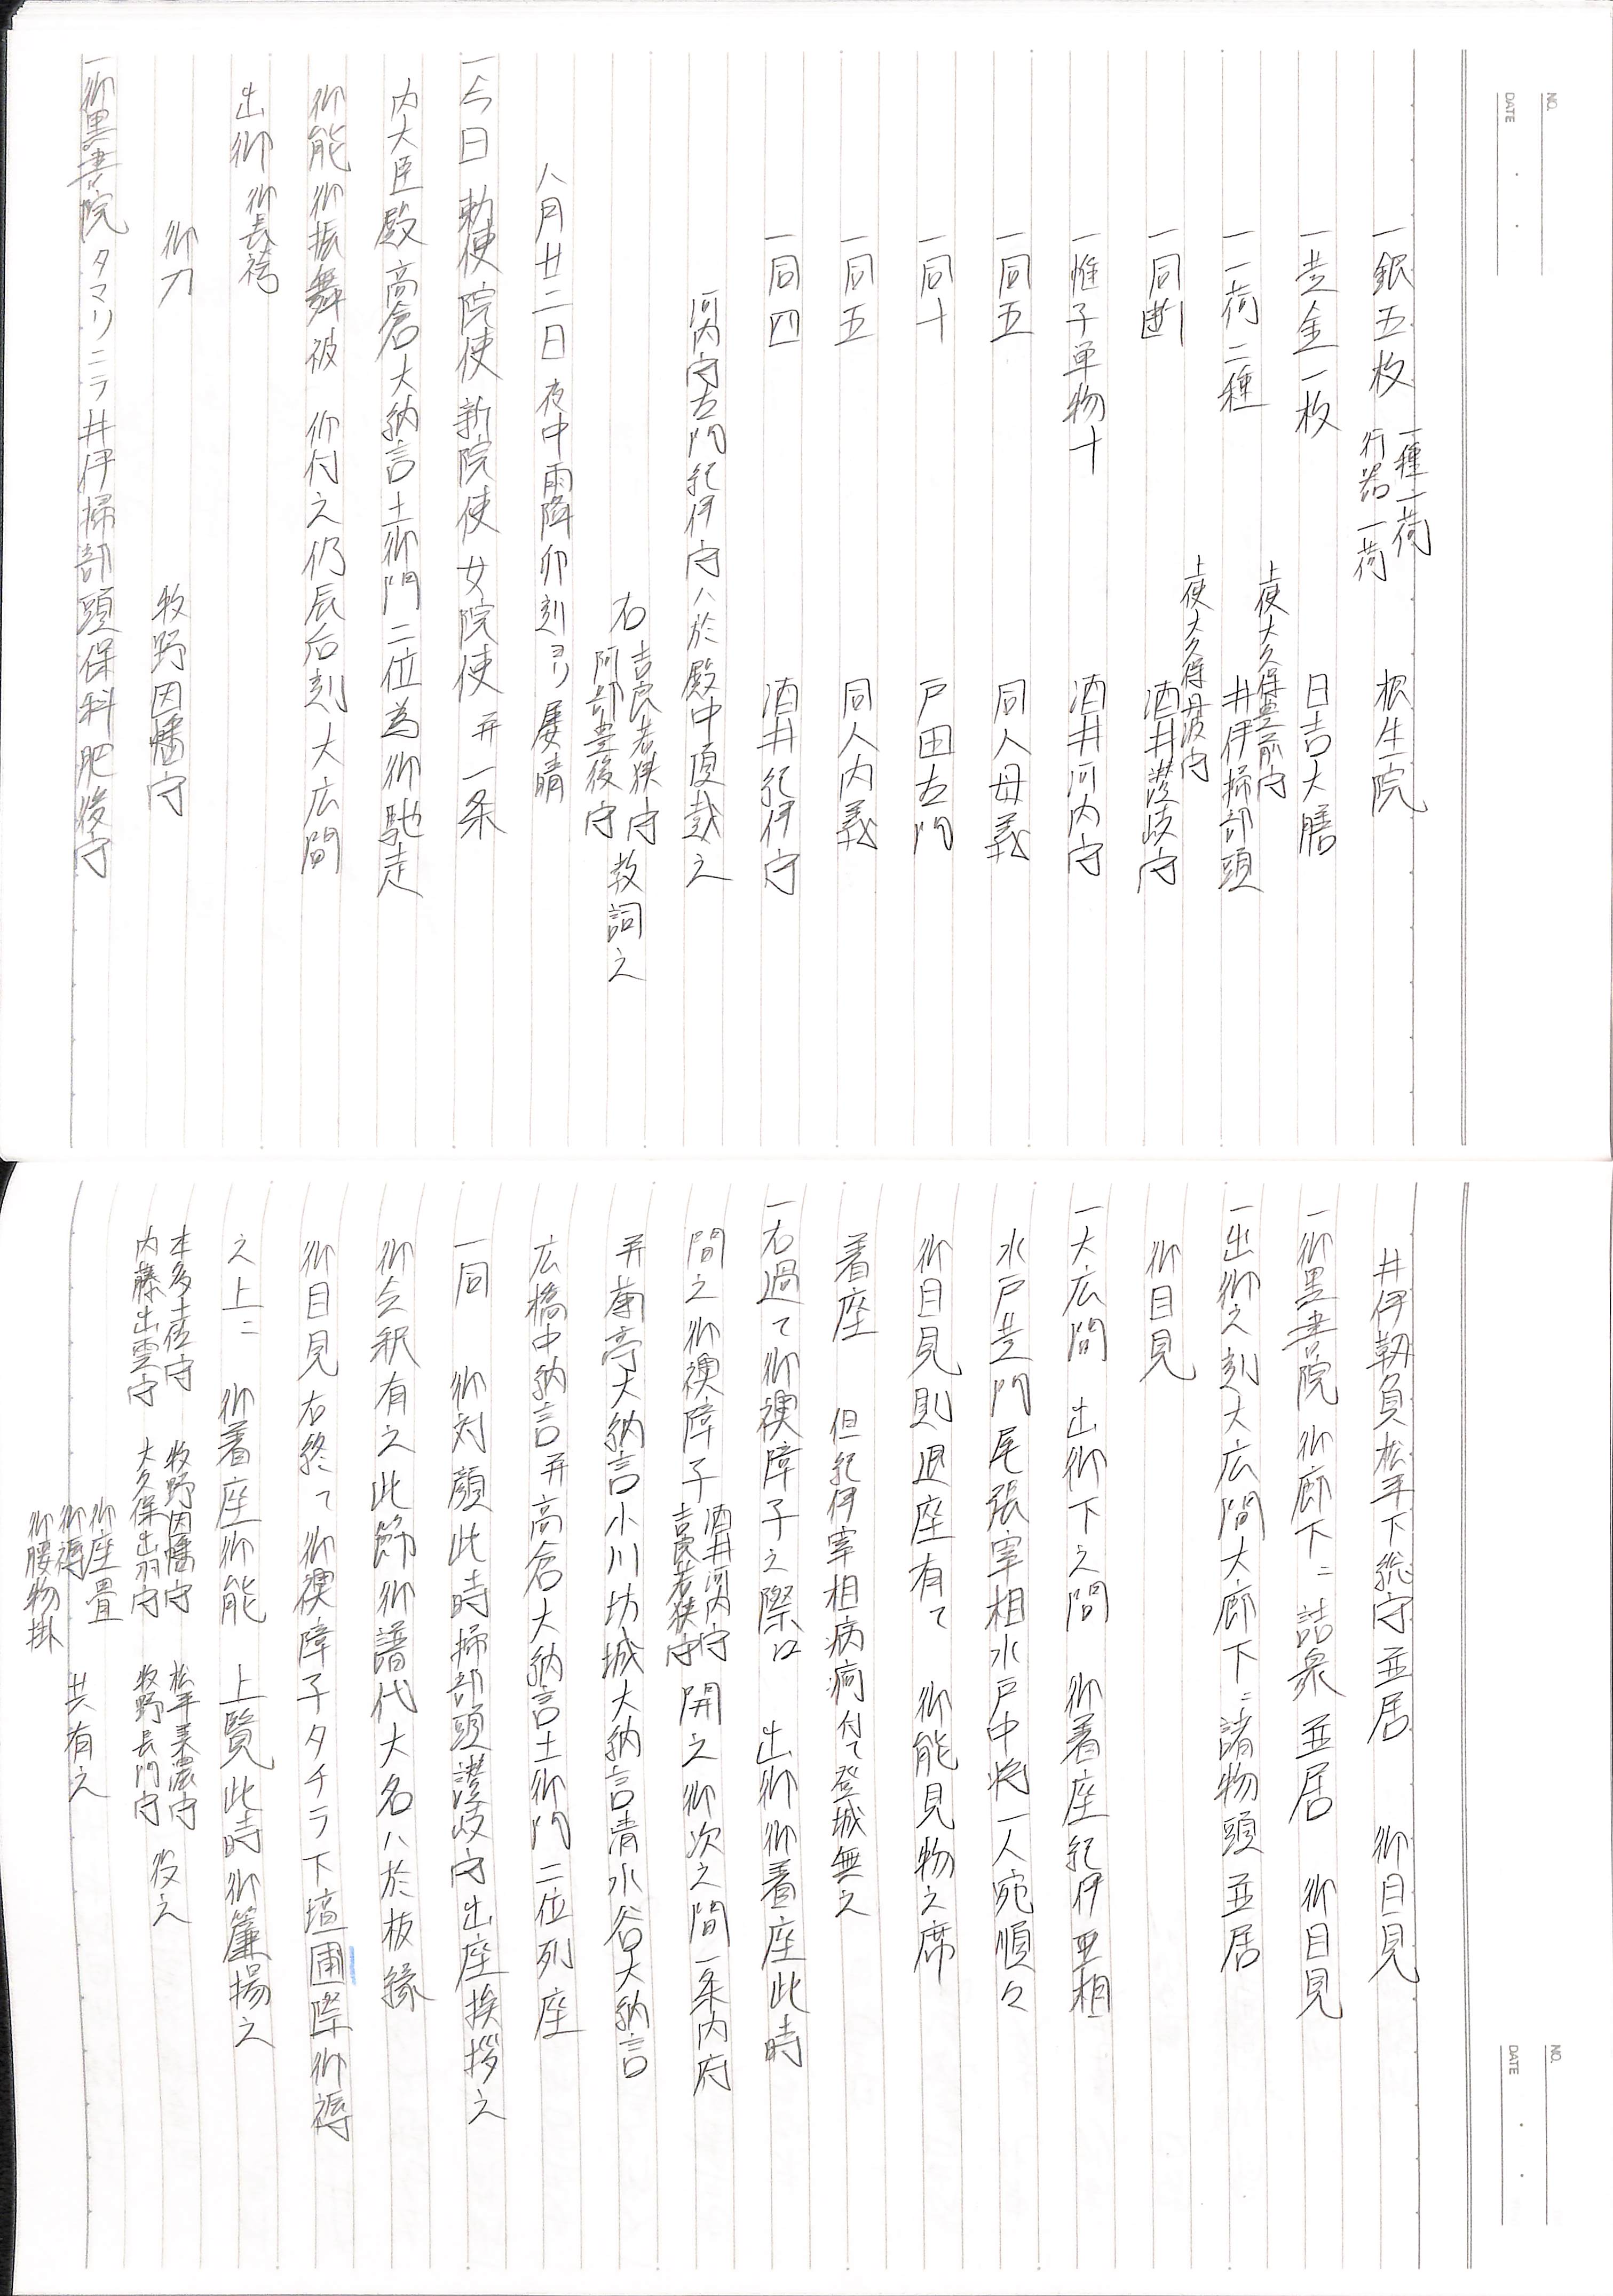 NO.
DATE
一銀五枚 一種一荷 行器一荷 根生院
一黄金一枚 日吉大膳
上使大久保豊前守
一一荷二種 井伊掃部頭
上使大久保丹波守
一同断 酒井讃岐守
一帷子単物十 酒井河内守
一同五 同人母義
一同十 戸田左門
一同五 同人内義
一同四 酒井紀伊守
河内守左門紀伊守ハ於殿中頂戴之
右 吉良若狭守 阿部豊後守 教詞之
八月廿二日 夜中雨降卯刻ヨリ屡晴
一今日 勅使 院使 新院使 女院使 并一条
内大臣殿 高倉大納言 土御門二位為御馳走
御能御振舞被 仰付之仍辰后刻大広間
出御 御長袴
御刀 牧野因幡守
一御黒書院タマリニラ井伊掃部頭保科肥後守
NO.
DATE
井伊靱負松平下総守並居 御目見
一御黒書院 御廊下ニ 詰衆並居 御目見
一出御之刻大広間大廊下ニ諸物頭並居
御目見
一大広間 出御下之間 御着座紀伊亜相
水戸黄門尾張宰相水戸中将一人宛順々
御目見則退座有て 御能見物之席
着座 但紀伊宰相病痾付て登城無之
一右過て御襖障子之際江 出御御着座此時
間之御襖障子 酒井河内守 吉良若狭守 開之御次之間一条内府
并菊亭大納言小川坊城大納言清水谷大納言
広橋中納言并高倉大納言土御門二位列座
一同 御対顔此時掃部頭讃岐守出座挨拶之
御会釈有之此節御譜代大名ハ於板縁
御目見右終て御襖障子タチラ下壇圃際御褥
之上ニ 御着座御能 上覧此時御簾揚之
本多土佐守 牧野因幡守 松平美濃守
内藤出雲守 大久保出羽守 牧野長門守 役之
御座畳
御褥 共有之
御腰物掛